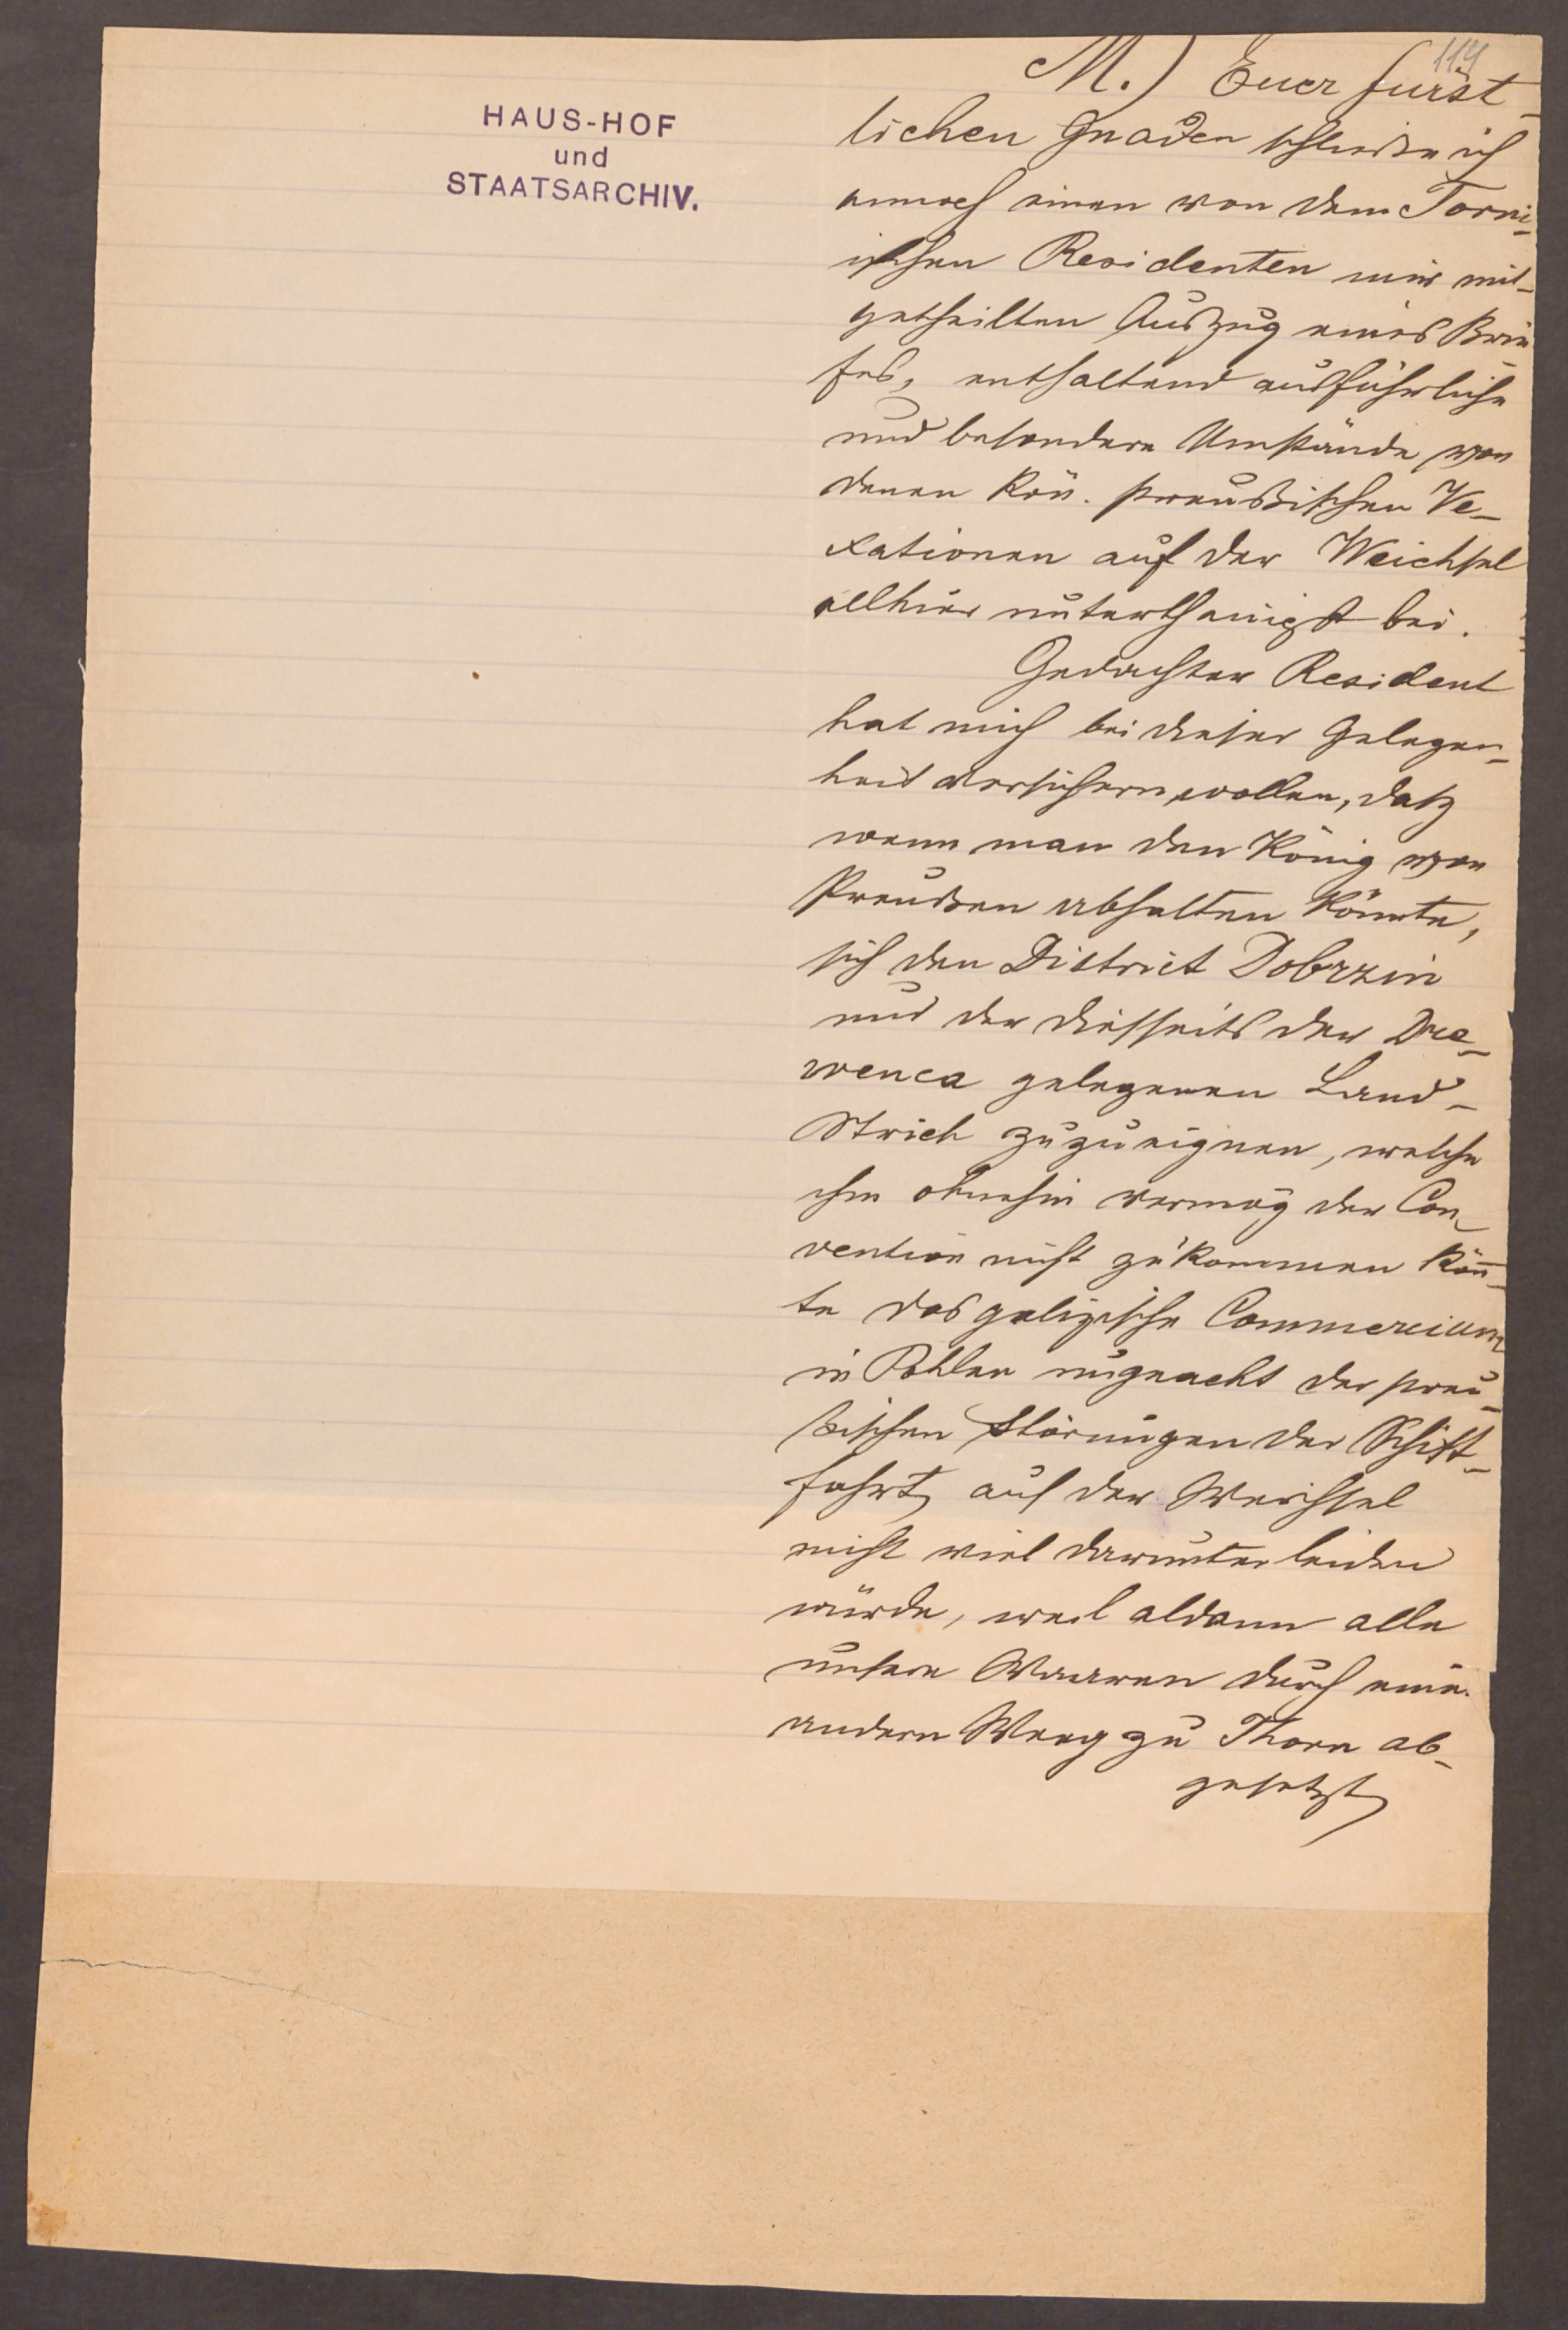 114
HAUS-HOF
und
STAATSARCHIV.
M.) Euer fürst-
lichen Gnaden schließe ich
annoch einen von dem Torni-
ischen Residenten mir mit-
getheilten Auszug eines Brie
fes, enthaltend ausführliche
und besondere Umstände von
denen Kön. preußischen Ve-
xationen auf der Weichsel
allhier unterthänigst bei.
Gedachter Resident
hat mich bei dieser Gelegen-
heit versichern wollen, daß
wenn man den König von
Preußen abhalten könnte,
sich den District Dobrzin
und der diesseits der Dre-
wenca gelegenen Land-
Strich zuzueignen, welche
ihm ohnehin vermög der Con-
vention nicht zukommen könn-
te das galizische Commercium
in Pohlen ungeacht der preu-
ßischen Störungen der Schiff-
fahrt auf der Weichsel
nicht viel darunter leiden
würde, weil aldann alle
unsere Waaren durch eine
andern Weeg zu Thorn ab-
gesetzt